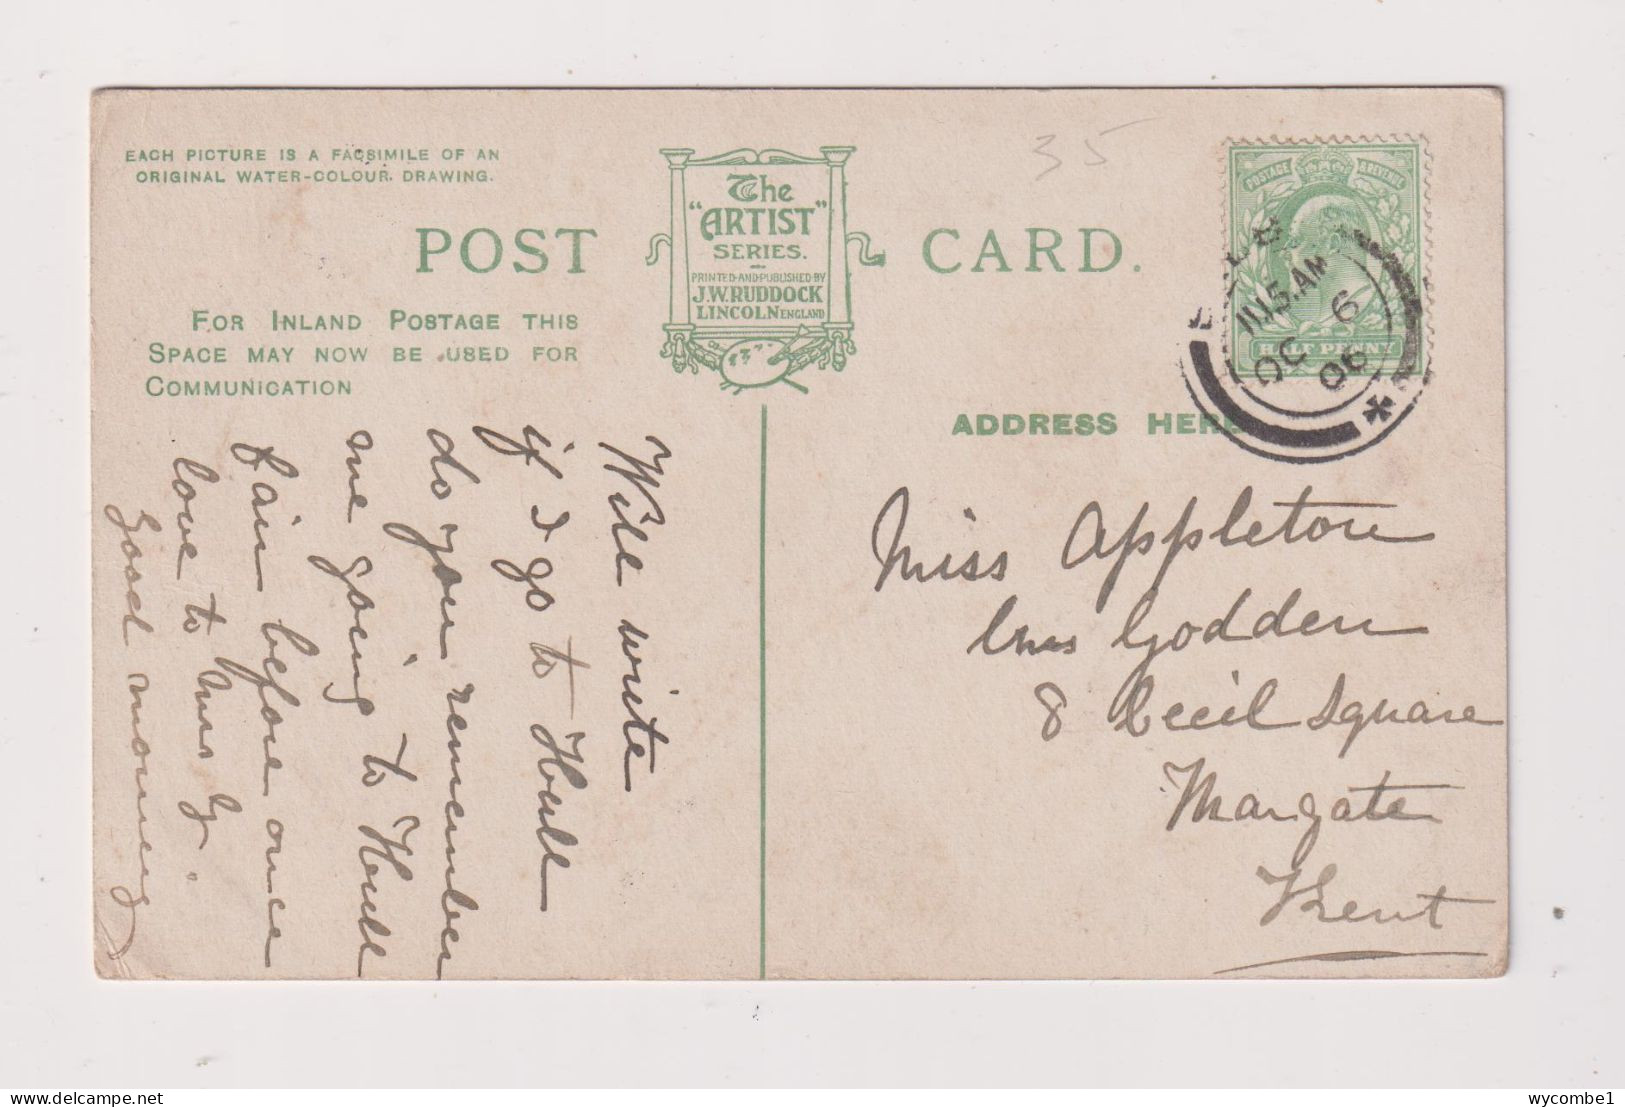 EACH PICTURE IS A FACSIMILE OF AN
ORIGINAL WATER-COLOUR. DRAWING.
POST CARD.
The
"ARTIST"
SERIES.
PRINTED AND PUBLISHED BY
J.W. RUDDOCK
LINCOLN ENGLAND
FOR INLAND POSTAGE THIS
SPACE MAY NOW BE USED FOR
COMMUNICATION
35
POSTAGE & REVENUE
HALF PENNY
1115.AM
OC 6
06
ADDRESS HERE
Will write
if I go to Hull
do you remember
me going to Hull
fair before once
love to Mrs G.
Good morning
Miss Appleton
Godden
8 Cecil Square
Margate
Kent
wycombe1